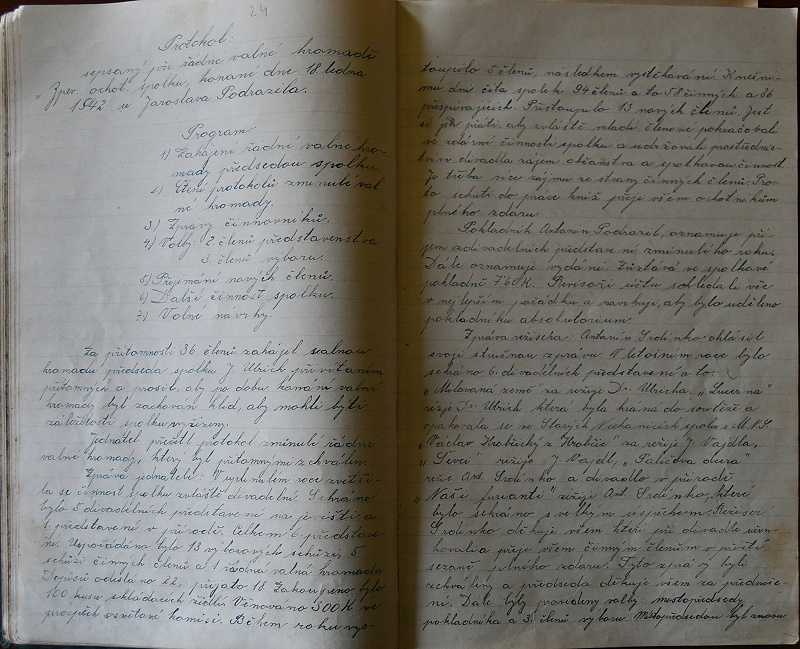 24
Protokol:
sepsaný při řádné valné hromadě
"Zpěv. ochot. spolku, konané dne 18. ledna
1942 u Jaroslava Podrazila.
Program:
1) Zahájení řádné valné hro-
mady předsedou spolku.
2) Čtení protokolů z minulé val
né hromady.
3) Zprávy činnovníků.
4) Volby: 2. členů představenstva
3. členů výboru.
5) Přijímání nových členů.
6) Další činnost spolku.
7) Volné návrhy.
Za přítomnosti 36 členů zahájil valnou
hromadu předseda spolku J. Ulrich přivítáním
přítomných a prosil, aby po dobu konání valné
hromady byl zachován klid, aby mohli býti
záležitosti spolku vyřízeny.
Jednatel přečetl protokol z minulé řádné
valné hromady, který byl přítomnými schválen.
Zpráva jednatele: V uplynulém roce zvětši-
la se činnost spolku zvláště divadelní. Sehráno
bylo 5 divadelních představení na jevišti a
1. představení v přírodě. Celkem 6. představe-
ní. Uspořádáno bylo 13 výborových schůzí, 5
schůzí činných členů a 1 řádná valná hromada
Dopisů odesláno 22, přijato 18. Zakoupeno bylo
100 kusů skládacích židlí. Věnováno 300 K ve
prospěch osvětové komisi. Během roku vys-
toupilo 5 členů, následkem vystěhování. K dnešní-
mu dni čítá spolek 94 členů a to 58 činných a 36
přispívajících. Přistoupilo 13 nových členů. Jest
si jen přáti, aby zvláště mladí členové pokračovali
ve zdárné činnosti spolku a udržovali prostřednic-
tvím divadla zájem občanstva a spolkovou činnost.
Je třeba více zájmu ze strany činných členů. Pro-
to schuti do práce kníž přeje všem ochotníkům
plného zdaru.
Pokladník Antonín Podrazil, oznamuje pří-
jem z divadelních představení z minulého roku.
Dále oznamuje vydání. Zůstává ve spolkové
pokladně 760 K. Revisoři účtu schledali vše
v nejlepším pořádku a navrhují, aby bylo uděleno
pokladníku absolutorium.
Zpráva režiséra: Antonín Srdínko ohlásil
svoji stručnou zprávu. V letošním roce bylo
sehráno 6. divadelních představení a to:
"Milovaná země" za režije Dr. Ulricha, "Lucerna"
režije Dr. Ulrich která byla hrána do soutěže a
opakovala se ve Starých Nechanicích spolu s M.N.S.
"Václav Hrobčický z Hrobčic" za režije J. Vajdla,
"Ševci" režije J. Vajdl, "Paličova dcera"
reže Ant. Srdínko a divadlo v přírodě
"Naši furianti" režije Ant. Srdínko, které
bylo sehráno s velkým úspěchem. Režisér
Srdínko děkuje všem kteří při divadle účin-
kovali a přeje všem činným členům v příští
sezoně plného zdaru. Tyto zprávy byli
schváleny a předseda děkuje všem za přednese-
ní. Dále byly provedeny volby: místopředsedy
pokladníka a 3. členů výboru. Místopředsedou byl znovu